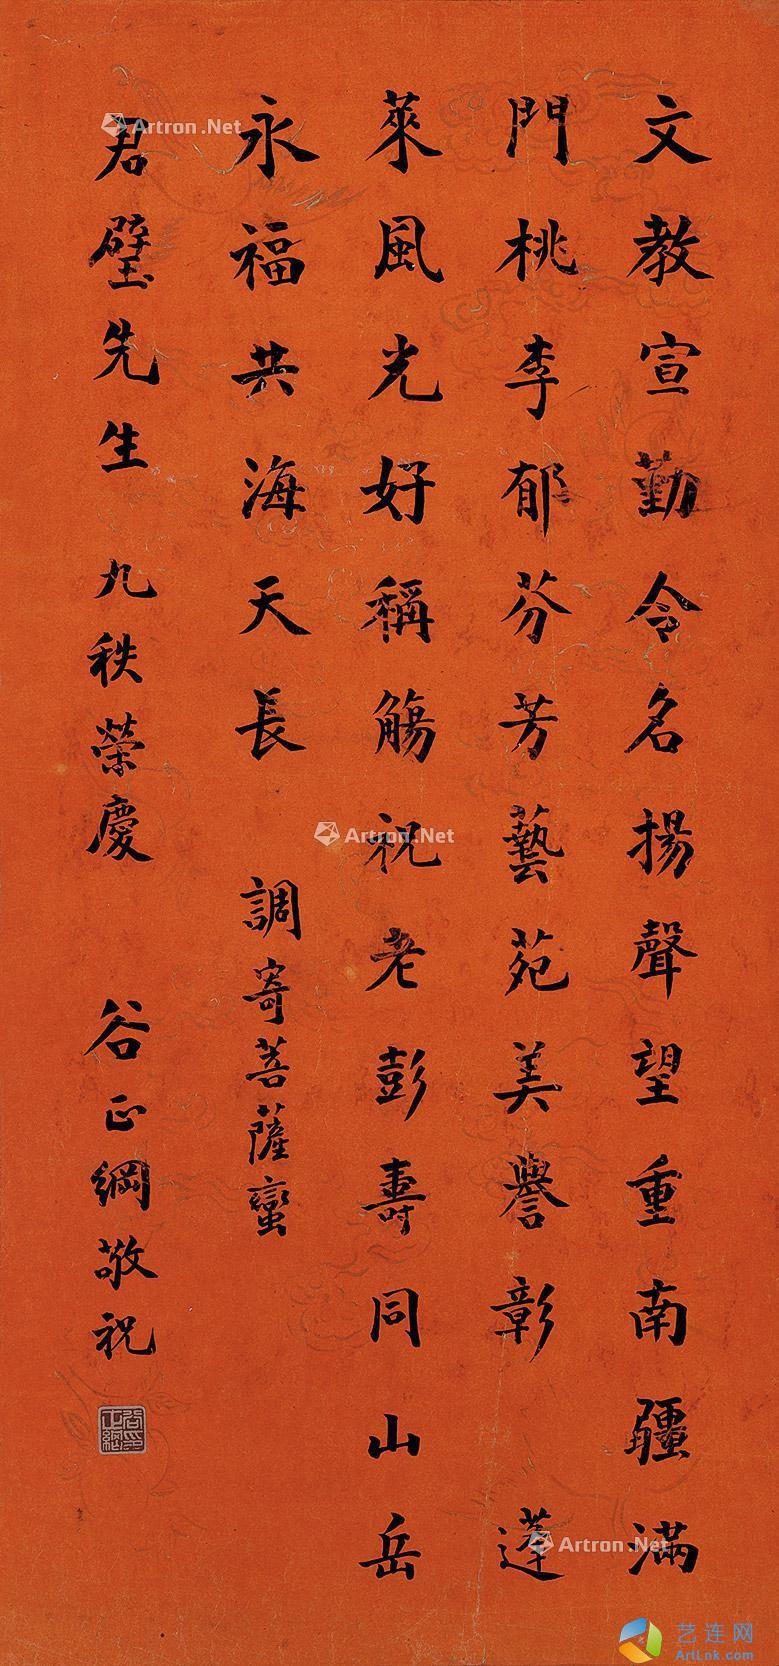 文教宣勤令名揚聲望重南疆滿
門桃李郁芬芳藝苑美譽彰 蓬
萊風光好稱觴祝老彭壽同山岳
永福共海天長 調寄菩薩蠻
君璧先生 九秩榮慶 谷正綱敬祝
谷正綱印
Artron.Net
Artron.Net
Artron.Net
艺连网
ArtLnk.com